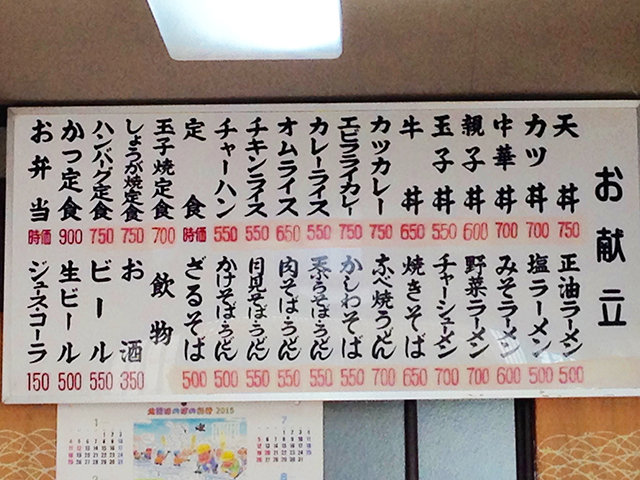 お献立
天丼 750
カツ丼 700
中華丼 700
親子丼 600
玉子丼 550
牛丼 650
カツカレー 750
エビフライカレー 750
カレーライス 550
オムライス 650
チキンライス 550
チャーハン 550
定食 時価
玉子焼定食 700
しょうが焼定食 750
ハンバーグ定食 750
かつ定食 900
お弁当 時価
正油ラーメン 500
塩ラーメン 500
みそラーメン 600
野菜ラーメン 700
チャーシューメン 700
焼きそば 650
なべ焼うどん 700
かしわそば 550
天ぷらそば・うどん 550
肉そば・うどん 550
月見そば・うどん 550
かけそば・うどん 500
ざるそば 500
飲物
お酒 350
ビール 550
生ビール 500
ジュース・コーラ 150
2015
1
7
8